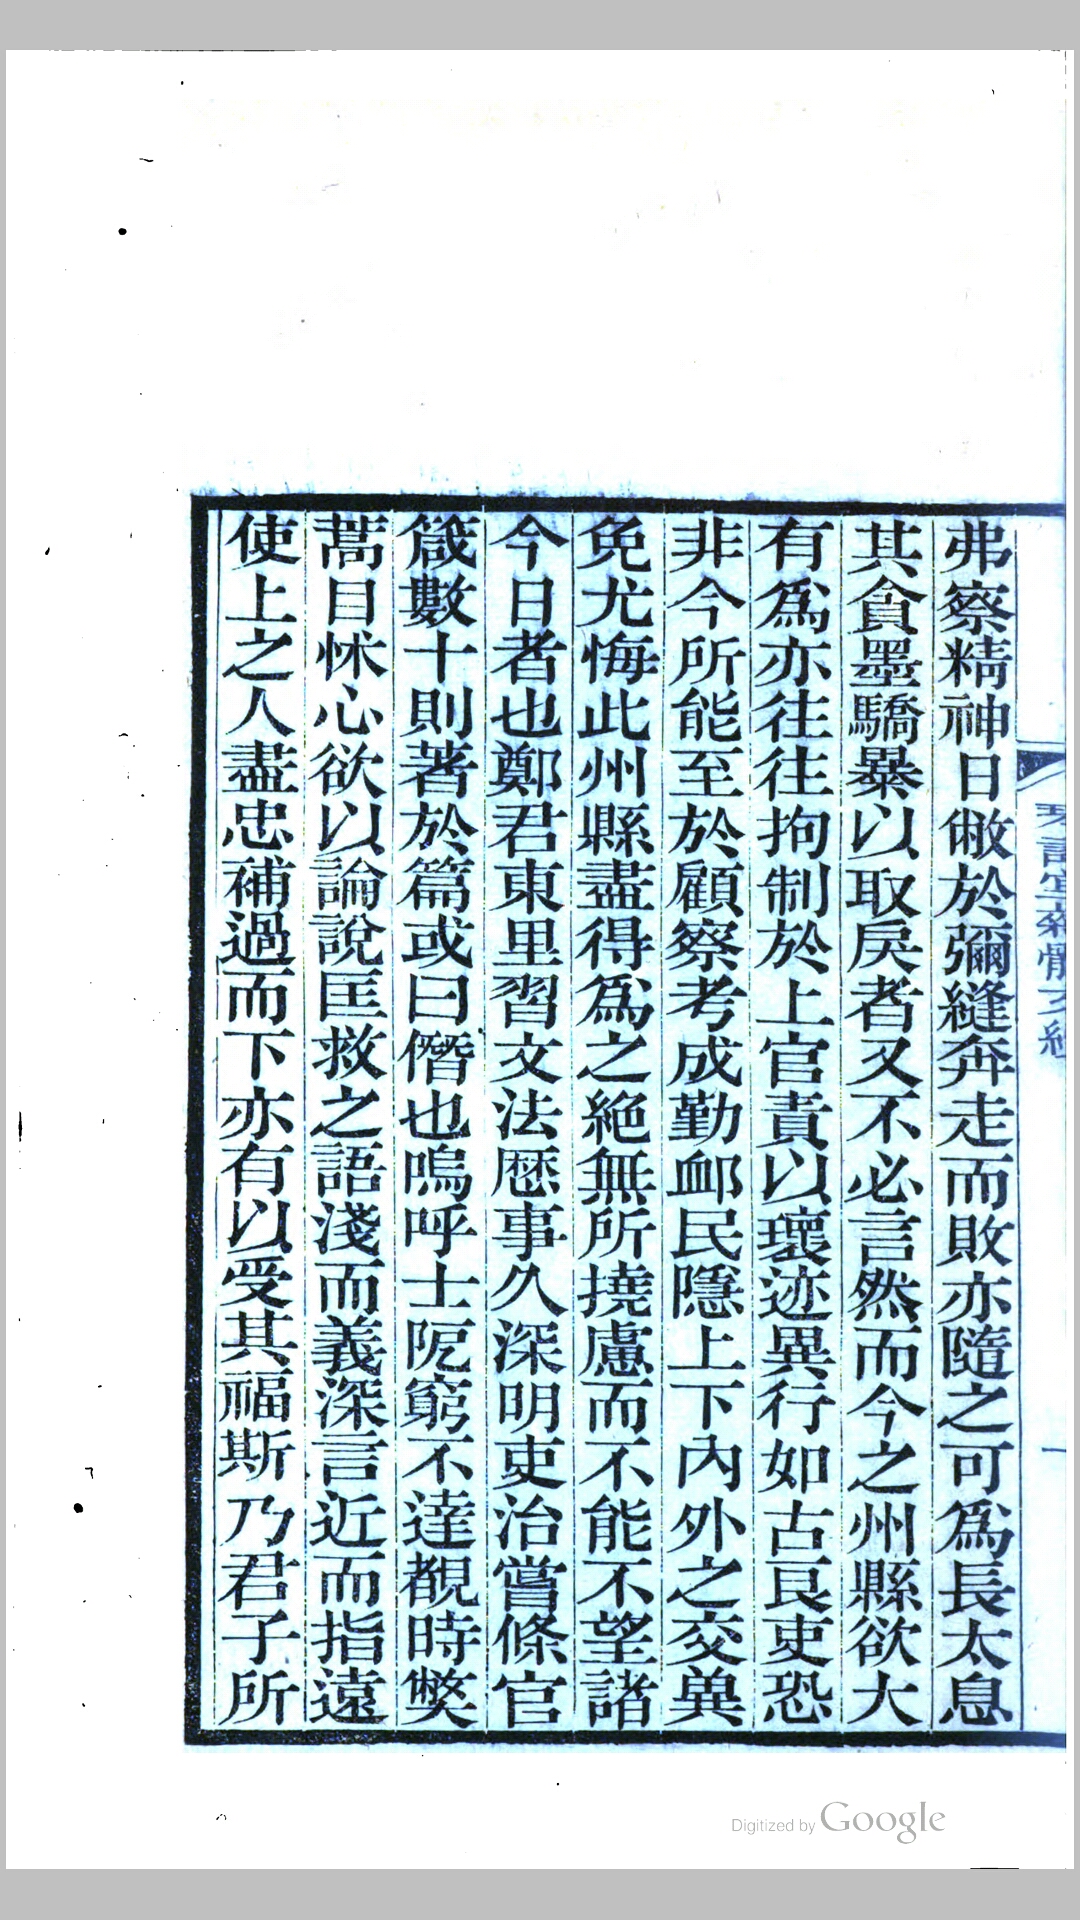 弗察精神日敝於彌縫奔走而敗亦隨之可爲長太息
其貪墨驕暴以取戾者又不必言然而今之州縣欲大
有爲亦往往拘制於上官責以壞迹異行如古良吏恐
非今所能至於顧察考成勤衈民隱上下內外之交與
免尤悔此州縣盡得爲之絕無所撓慮而不能不望諸
今日者也鄭君東里習文法歷事久深明吏治嘗條官
箴數十則著於篇或曰僭也嗚呼士阨窮不達覩時獘
蒿目怵心欲以論說匡救之語淺而義深言近而指遠
使上之人盡忠補過而下亦有以受其福斯乃君子所
Digitized by Google